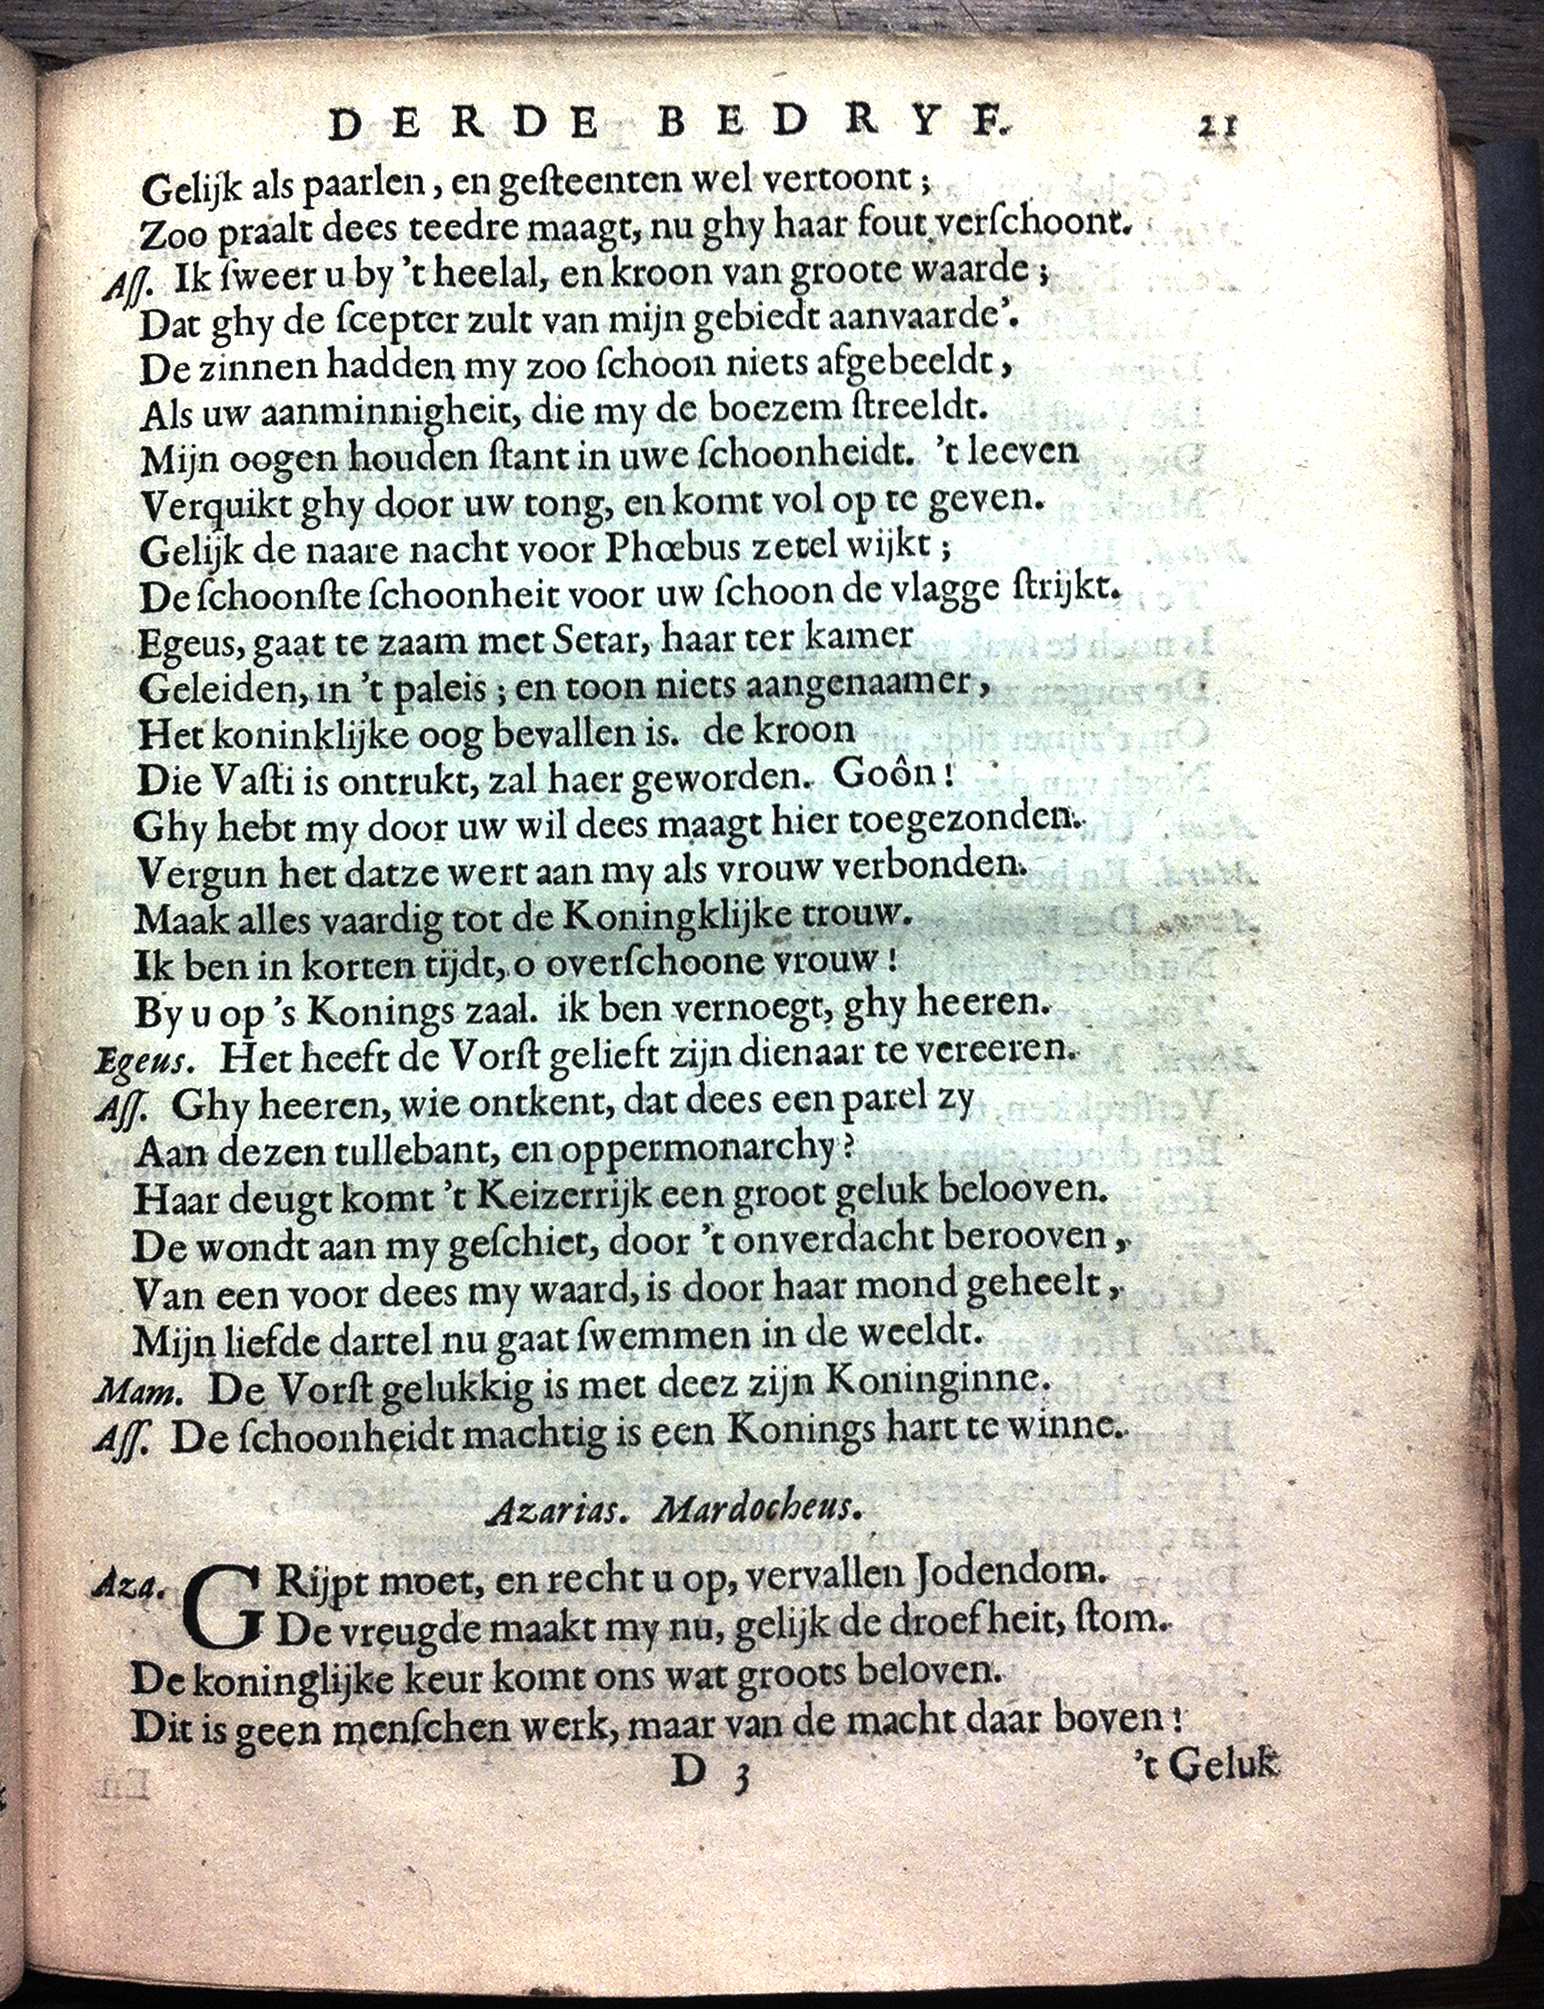 DERDE BEDRYF. 21
Gelijk als paarlen, en geſteenten wel vertoont;
Zoo praalt dees teedre maagt, nu ghy haar fout verſchoont.
Aſſ. Ik ſweer u by 't heelal, en kroon van groote waarde;
Dat ghy de ſcepter zult van mijn gebiedt aanvaarde'.
De zinnen hadden my zoo ſchoon niets afgebeeldt,
Als uw aanminnigheit, die my de boezem ſtreeldt.
Mijn oogen houden ſtant in uwe ſchoonheidt. 't leeven
Verquikt ghy door uw tong, en komt vol op te geven.
Gelijk de naare nacht voor Phœbus zetel wijkt;
De ſchoonſte ſchoonheit voor uw ſchoon de vlagge ſtrijkt.
Egeus, gaat te zaam met Setar, haar ter kamer
Geleiden, in 't paleis; en toon niets aangenaamer,
Het koninklijke oog bevallen is. de kroon
Die Vaſti is ontrukt, zal haer geworden. Goôn!
Ghy hebt my door uw wil dees maagt hier toegezonden.
Vergun het datze wert aan my als vrouw verbonden.
Maak alles vaardig tot de Koningklijke trouw.
Ik ben in korten tijdt, o overſchoone vrouw!
By u op 's Konings zaal. ik ben vernoegt, ghy heeren.
Egeus. Het heeft de Vorſt gelieft zijn dienaar te vereeren.
Aſſ. Ghy heeren, wie ontkent, dat dees een parel zy
Aan dezen tullebant, en oppermonarchy?
Haar deugt komt 't Keizerrijk een groot geluk belooven.
De wondt aan my geſchiet, door 't onverdacht berooven,
Van een voor dees my waard, is door haar mond geheelt,
Mijn liefde dartel nu gaat ſwemmen in de weeldt.
Mam. De Vorſt gelukkig is met deez zijn Koninginne.
Aſſ. De ſchoonheidt machtig is een Konings hart te winne.
Azarias. Mardocheus.
Aza. GRijpt moet, en recht u op, vervallen Jodendom.
De vreugde maakt my nu, gelijk de droefheit, ſtom.
De koninglijke keur komt ons wat groots beloven.
Dit is geen menſchen werk, maar van de macht daar boven!
D 3 't Geluk